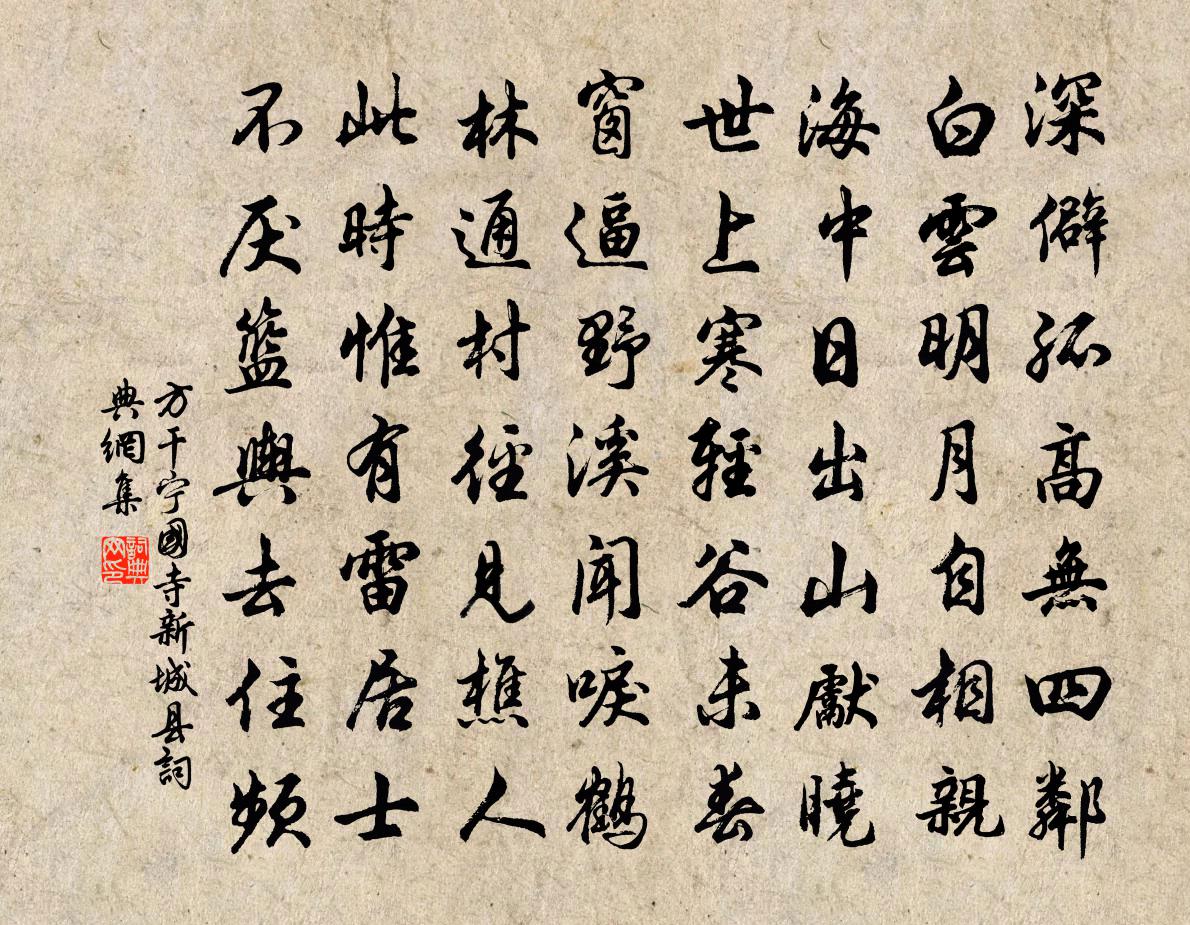 深僻孤高無四鄰
白雲明月自相親
海中日出山獻曉
世上寒輕谷未春
窗逼野溪聞唳鶴
林通村徑見樵人
此時惟有雷居士
不厌籃輿去住頻
方干宁國寺新城县詞
典網集
詞典
网印